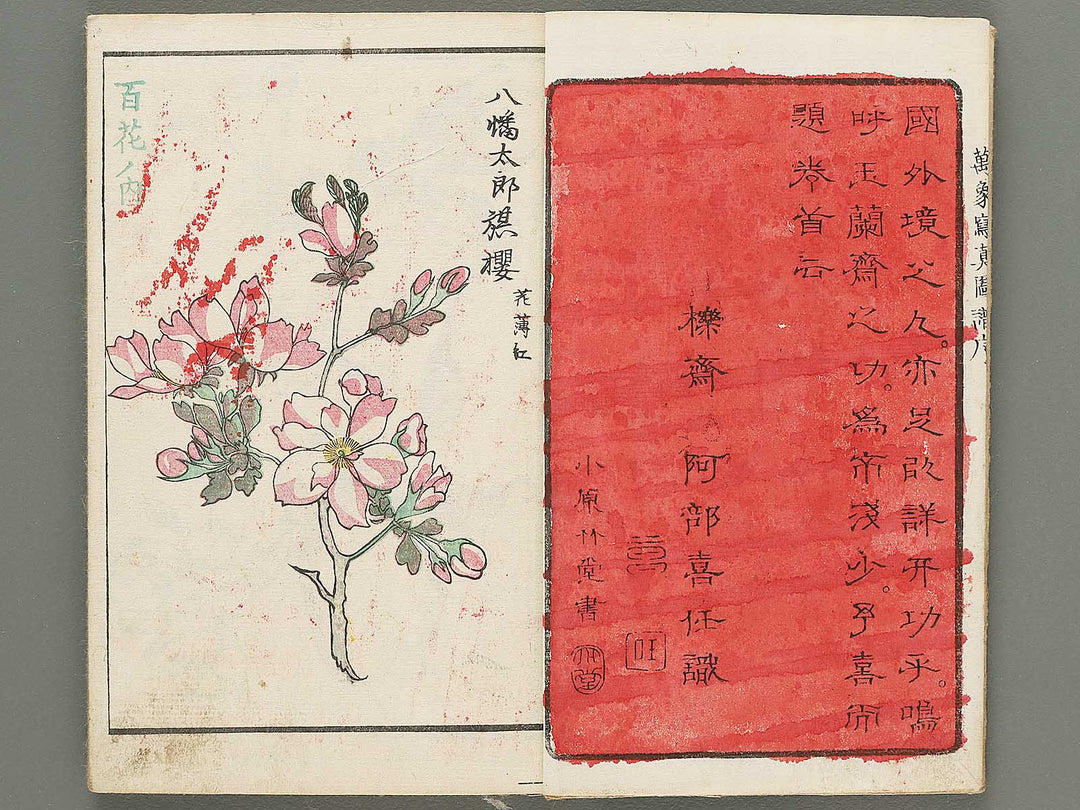 國外境之人。亦足以詳开功乎。嗚
呼玉蘭齋之功。爲不淺少。予喜而
題卷首云
櫟齋 阿部喜任識
小原竹堂書
竹堂
萬象寫真圖譜
八幡太郎簱櫻
花薄紅
百花ノ内